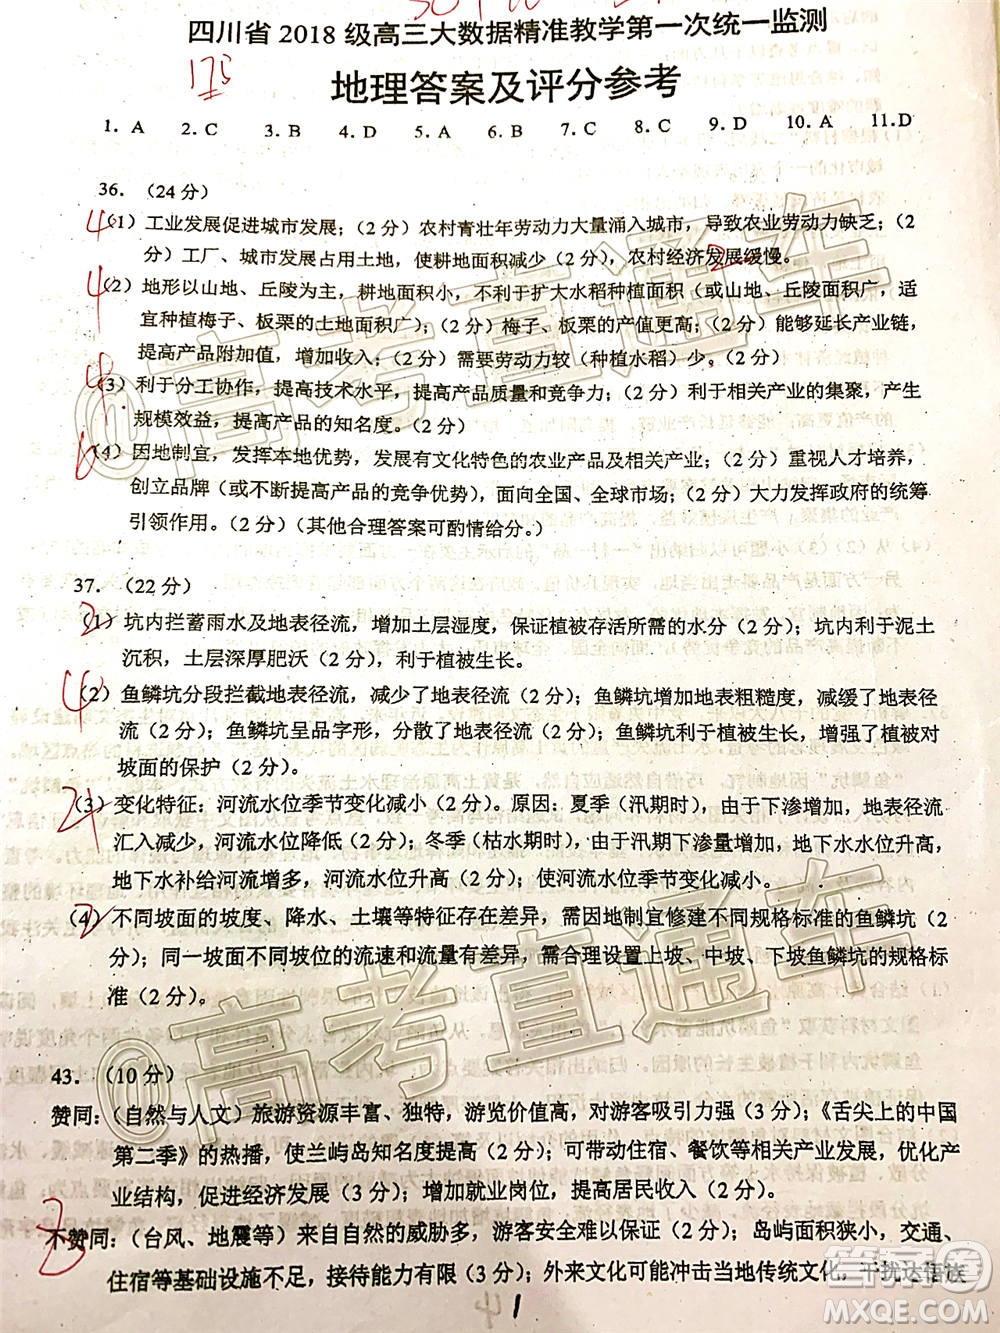 四川省 2018 级高三大数据精准教学第一次统一监测
175
地理答案及评分参考
1. A 2. C 3. B 4. D 5. A 6. B 7. C 8. C 9. D 10. A 11. D
36. （24 分）
4 (1) 工业发展促进城市发展；（2 分）农村青壮年劳动力大量涌入城市，导致农业劳动力缺乏；（2
分）工厂、城市发展占用土地，使耕地面积减少（2 分），农村经济发展缓慢。
4 (2) 地形以山地、丘陵为主，耕地面积小，不利于扩大水稻种植面积（或山地、丘陵面积广，适
宜种植梅子、板栗的土地面积广）；（2 分）梅子、板栗的产值更高；（2 分）能够延长产业链，
提高产品附加值，增加收入；（2 分）需要劳动力较（种植水稻）少。（2 分）
(3) 利于分工协作，提高技术水平，提高产品质量和竞争力；（2 分）利于相关产业的集聚，产生
规模效益，提高产品的知名度。（2 分）
6 (4) 因地制宜，发挥本地优势，发展有文化特色的农业产品及相关产业；（2 分）重视人才培养，
创立品牌（或不断提高产品的竞争优势），面向全国、全球市场；（2 分）大力发挥政府的统筹
引领作用。（2 分）（其他合理答案可酌情给分。）
37. （22 分）
2 (1) 坑内拦蓄雨水及地表径流，增加土层湿度，保证植被存活所需的水分（2 分）；坑内利于泥土
沉积，土层深厚肥沃（2 分），利于植被生长。
4 (2) 鱼鳞坑分段拦截地表径流，减少了地表径流（2 分）；鱼鳞坑增加地表粗糙度，减缓了地表径
流流速（2 分）；鱼鳞坑呈品字形，分散了地表径流（2 分）；鱼鳞坑利于植被生长，增强了植被对
坡面的保护（2 分）
(3) 变化特征：河流水位季节变化减小（2 分）。原因：夏季（汛期时），由于下渗增加，地表径流
汇入减少，河流水位降低（2 分）；冬季（枯水期时），由于汛期下渗量增加，地下水水位升高，
地下水补给河流增多，河流水位升高（2 分）；使河流水位季节变化减小。
2 (4) 不同坡面的坡度、降水、土壤等特征存在差异，需因地制宜修建不同规格标准的鱼鳞坑（2
分）；同一坡面不同坡位的流速和流量有差异，需合理设置上坡、中坡、下坡鱼鳞坑的规格标
准（2 分）。
43. （10 分）
赞同：（自然与人文）旅游资源丰富、独特，游览价值高，对游客吸引力强（3 分）；《舌尖上的中国
第二季》的热播，使兰屿岛知名度提高（2 分）；可带动住宿、餐饮等相关产业发展，优化产
业结构，促进经济发展（3 分）；增加就业机会，提高居民收入（2 分）。
3 不赞同：（台风、地震等）来自自然的威胁多，游客安全难以保证（2 分）；岛屿面积狭小，交通、
住宿等基础设施不足，接待能力有限（3 分）；外来文化可能冲击当地传统文化，干扰达悟族
1
@高考直通车
@高考直通车
答案圈
MXQE.COM